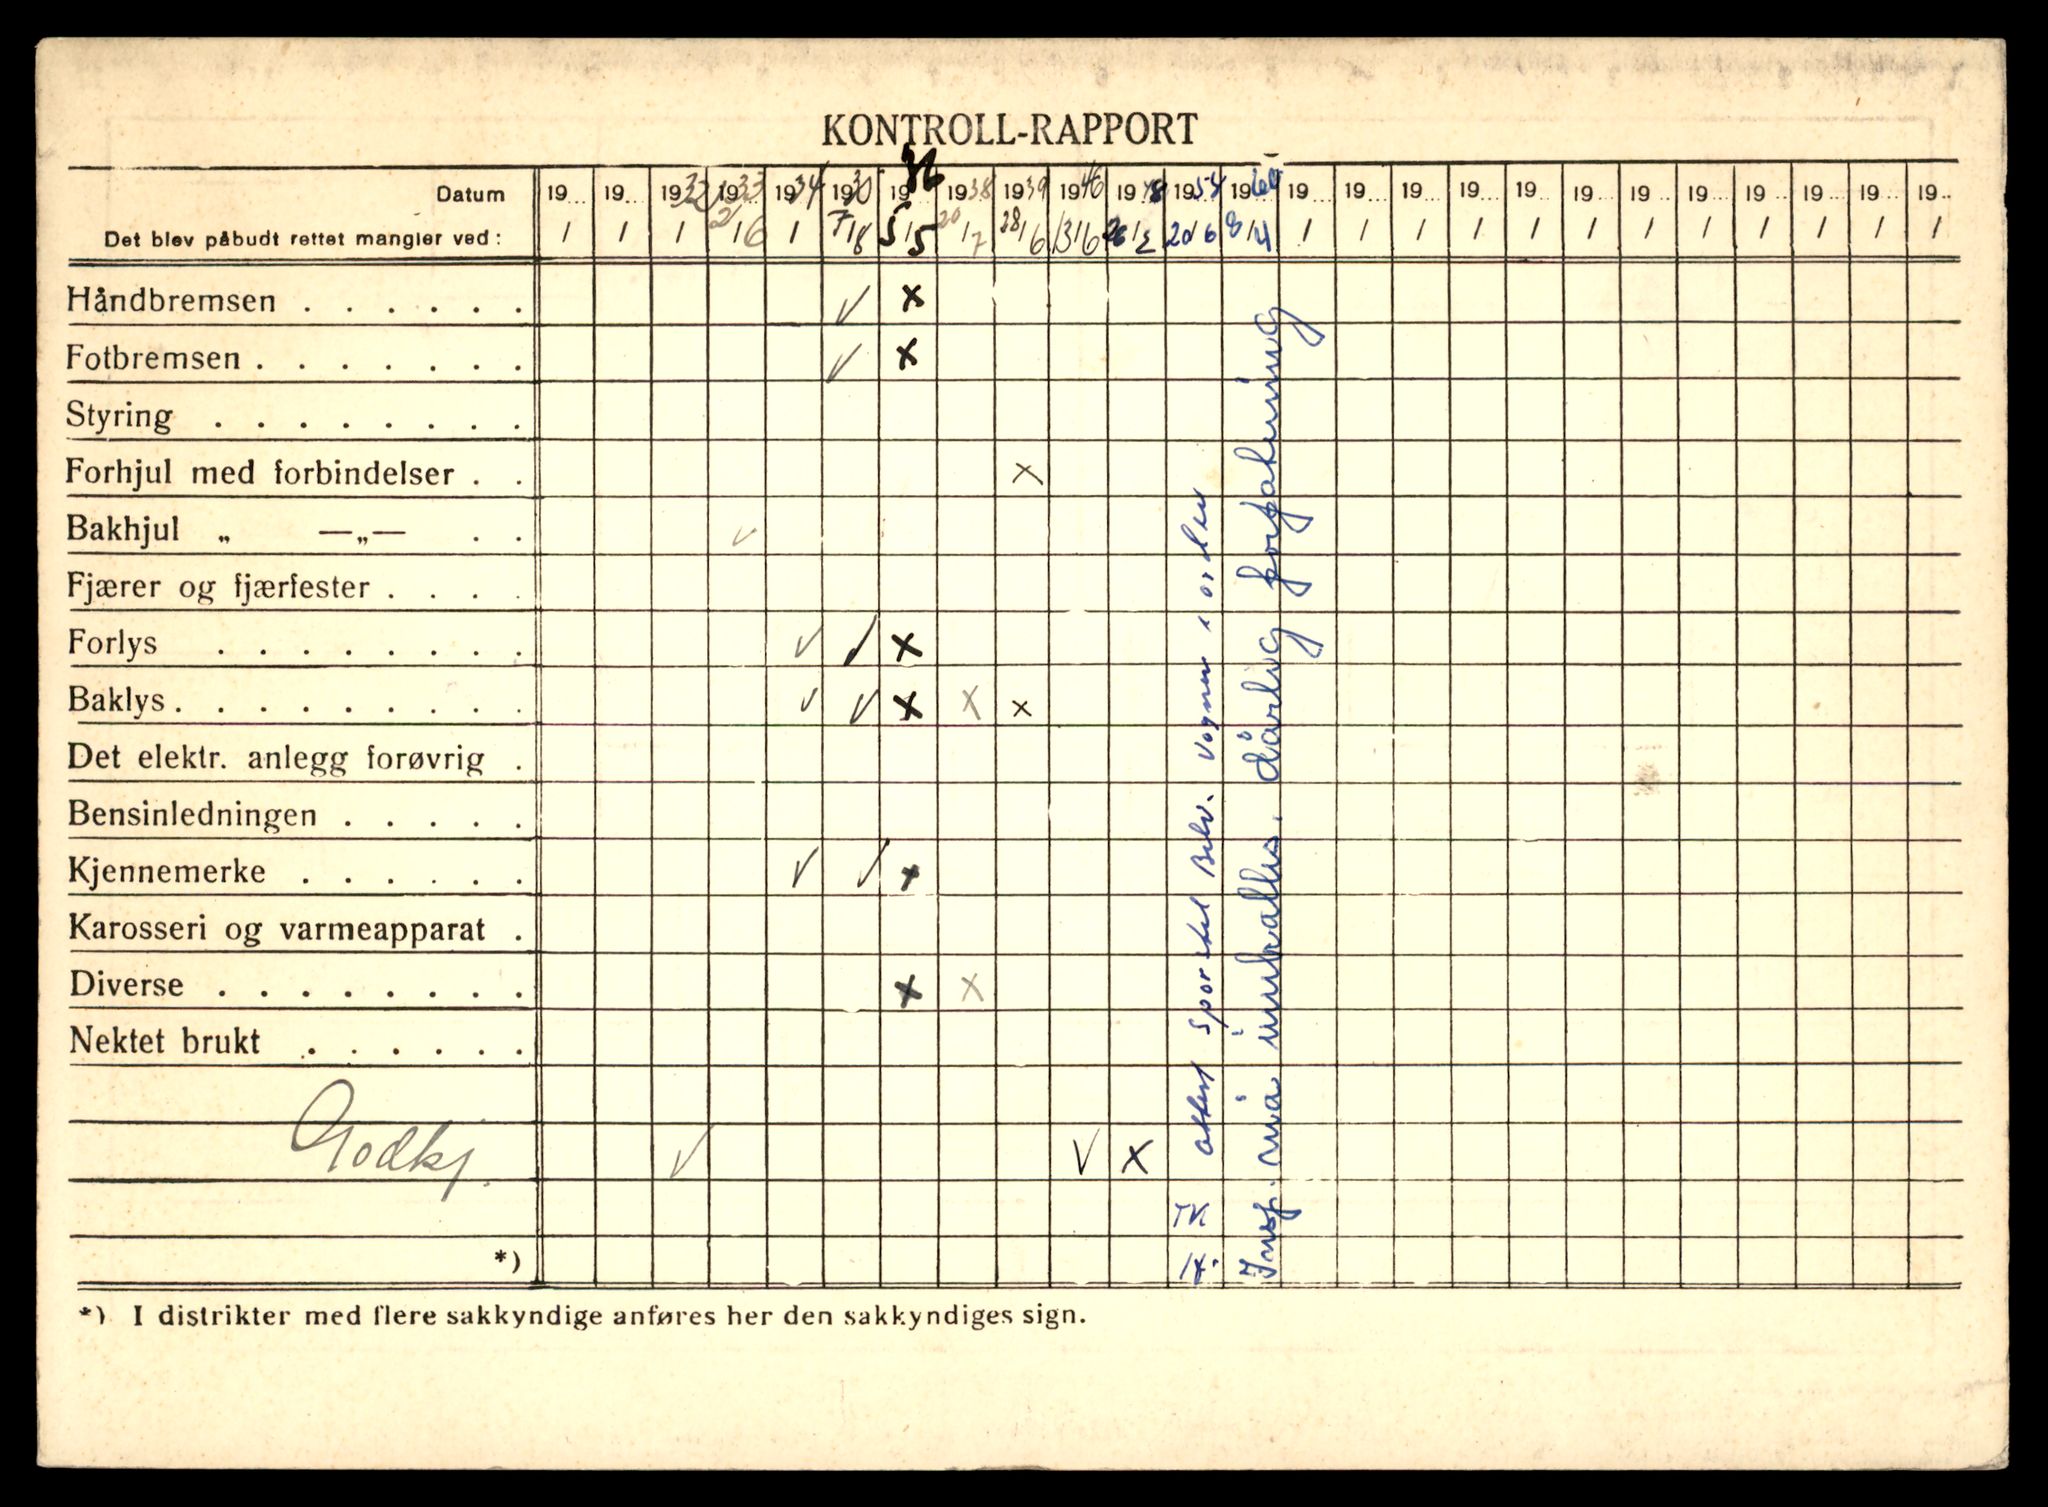 KONTROLL-RAPPORT
Datum 19... 19... 1932 1933 1934 1930 1936 1938 1939 1946 1948 1954 1960 19... 19... 19... 19... 19... 19... 19... 19... 19... 19... 19... 19...
Det blev påbudt rettet mangler ved: / / / 2/6 / 7/8 5/5 20/7 28/6 13/6 26/2 20/6 8/4 / / / / / / / / / / / /
Håndbremsen . . . . . . √ x
Fotbremsen . . . . . . . √ x
Styring . . . . . . . .
Forhjul med forbindelser . . x
Bakhjul „ —„— . . √
Fjærer og fjærfester . . . .
Forlys . . . . . . . . √ √ x
Baklys . . . . . . . . . √ √ x x x
Det elektr. anlegg forøvrig .
Bensinledningen . . . . .
Kjennemerke . . . . . . √ √ x
Karosseri og varmeapparat .
Diverse . . . . . . . . x x
Nektet brukt . . . . . .
Godkj. √ √ x
*)
attest Vognen i orden
Insp. må innkalles. dårlig forfatning
TK
*) I distrikter med flere sakkyndige anføres her den sakkyndiges sign.